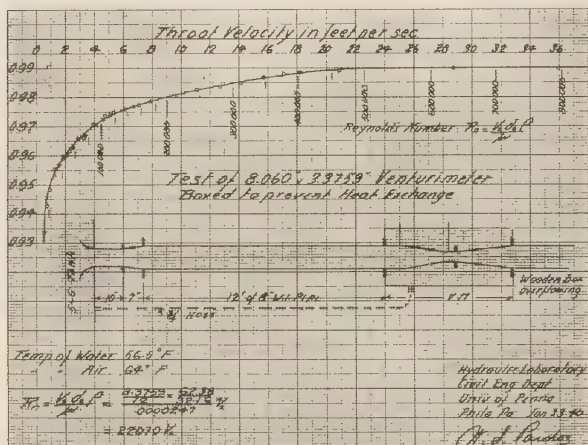 Throat Velocity in feet per sec
0 2 4 6 8 10 12 14 16 18 20 22 24 26 28 30 32 34 36
0.99
0.98
0.97
0.96
0.95
0.94
0.93
100000 200000 300000 400000 500000 600000 700000 800000
Reynolds Number
Test of 8.060" x 3.3759" Venturimeter
Boxed to prevent Heat Exchange
12' of 8" W.I. Pipe
V.M.
Wooden Box
Overflowing
Hose
Temp of Water 66.5° F
" " Air 64° F
.0000247
= 22070 V₂
Hydraulic Laboratory
Civil Eng Dept
Univ of Penna
Phila Pa